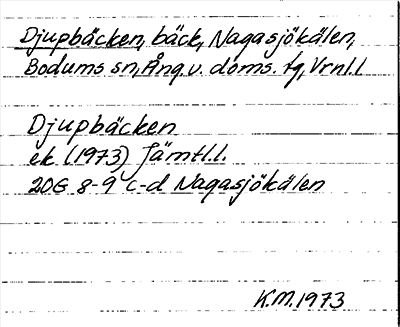 Djupbäcken, bäck, Nagasjökälen,
Bodums sn, Ång.v. doms. tg, Vrnl.l
Djupbäcken
ek. (1973) Jämtl.l.
20G 8-9 c-d Nagasjökälen
K.M. 1973